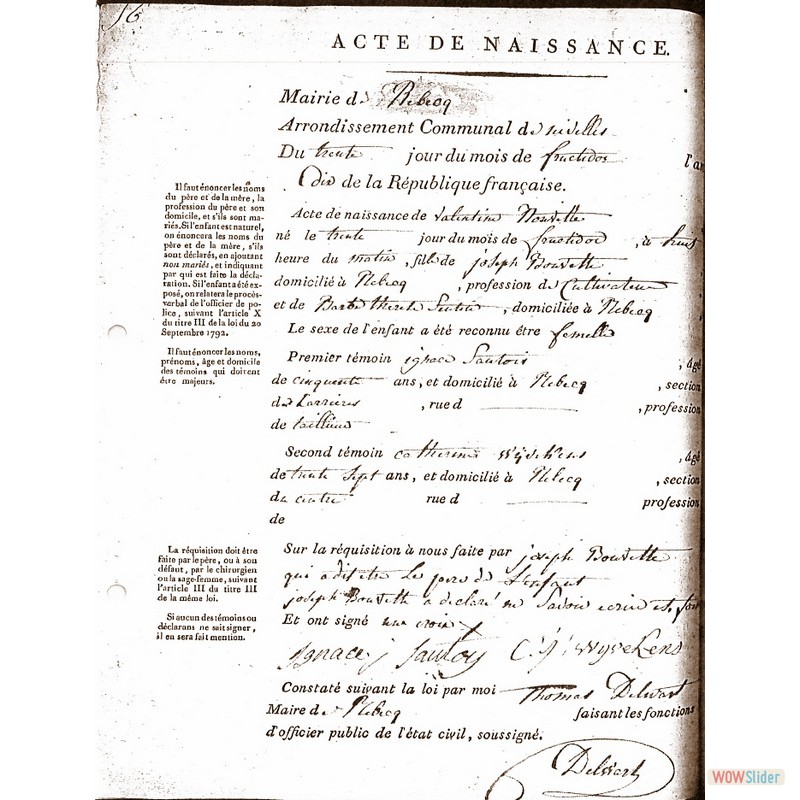 16
ACTE DE NAISSANCE.
Mairie de Rebecq
Arrondissement Communal de nivelles
Du trente jour du mois de fructidor l'an
dix de la République française.
Il faut énoncer les noms
du père et de la mère, la
profession du père et son
domicile, et s'ils sont ma-
riés. Si l'enfant est naturel,
on énoncera les noms du
père et de la mère, s'ils
sont déclarés, en ajoutant
non mariés, et indiquant
par qui est faite la décla-
ration. Si l'enfant a été ex-
posé, on relatera le procès-
verbal de l'officier de po-
lice, suivant l'article X
du titre III de la loi du 20
Septembre 1792.
Acte de naissance de Valentine
né le trente jour du mois de fructidor , à huit
heure du matin , fille de joseph Bouvette
domicilié à Rebecq , profession de Cultivateur
et de Barbe Therese , domiciliée à Rebecq
Le sexe de l'enfant a été reconnu être femelle
Il faut énoncer les noms,
prénoms, âge et domicile
des témoins qui doivent
être majeurs.
Premier témoin ignace Sautois , âgé
de cinquante ans, et domicilié à Rebecq , section
de , rue d , profession
de tailleur
Second témoin catherine wijvekens , âgé
de trente Sept ans, et domicilié à Rebecq , section
du centre rue d profession
de
La réquisition doit être
faite par le père, ou à son
défaut, par le chirurgien
ou la sage-femme, suivant
l'article III du titre III
de la même loi.
Sur la réquisition à nous faite par joseph Bouvette
qui a dit être Le pere de L'enfant
joseph Bouvette a declaré ne Savoir ecrire et a fait
Si aucun des témoins ou
déclarans ne sait signer,
il en sera fait mention.
Et ont signé une croix X
Ignace j Sautois C: J: wyvekens
Constaté suivant la loi par moi Thomas Delwart
Maire de Rebecq faisant les fonctions
d'officier public de l'état civil, soussigné.
Delwart
WOWSlider